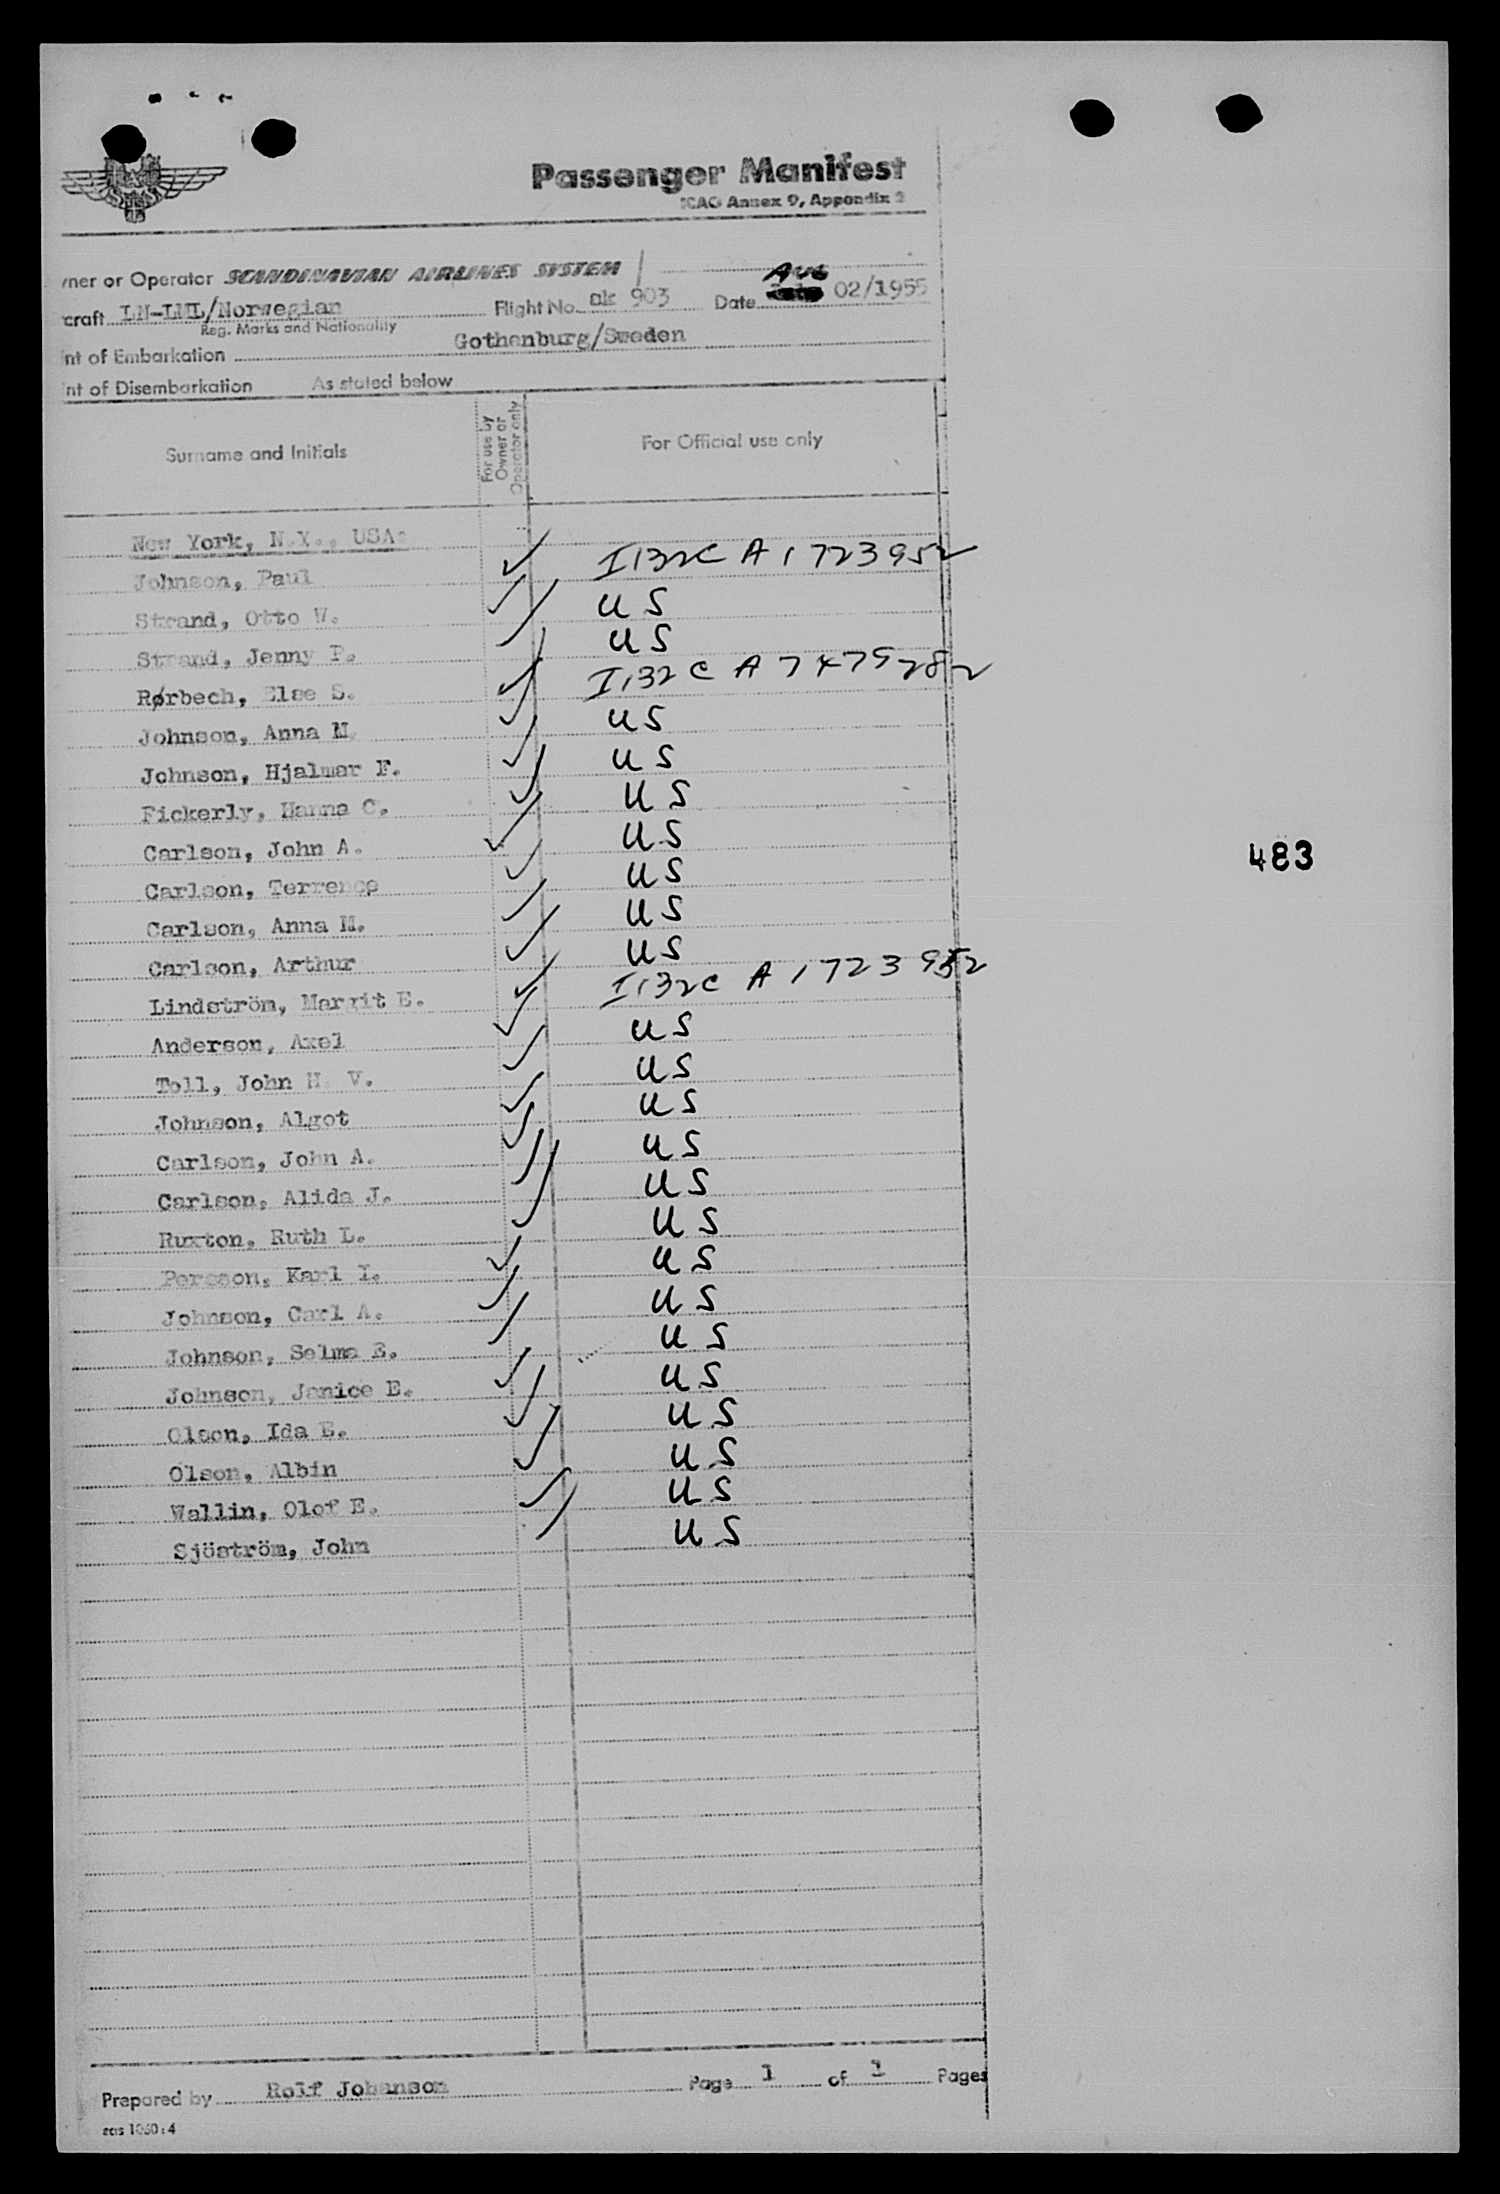 Passenger Manifest
ICAO Annex 9, Appendix 2
wner or Operator SCANDINAVIAN AIRLINES SYSTEM
Aug
craft LN-LML/Norwegian Flight No. sk 903 Date 02/1955
Reg. Marks and Nationality
int of Embarkation Gothenburg/Sweden
int of Disembarkation As stated below
Surname and Initials For use by Owner or Operator only For Official use only
New York, N.Y., USA:
Johnson, Paul ✓ I132C A1723952
Strand, Otto W. ✓ US
Strand, Jenny P. ✓ US
Rørbech, Else S. ✓ I132C A7475282
Johnson, Anna M. ✓ US
Johnson, Hjalmar F. ✓ US
Fickerly, Hanna C. ✓ US
Carlson, John A. ✓ US
Carlson, Terrence ✓ US
Carlson, Anna M. ✓ US
Carlson, Arthur ✓ US
Lindström, Margit E. ✓ I132C A1723952
Anderson, Axel ✓ US
Toll, John H. V. ✓ US
Johnson, Algot ✓ US
Carlson, John A. ✓ US
Carlson, Alida J. ✓ US
Ruxton, Ruth L. ✓ US
Persson, Karl I. ✓ US
Johnson, Carl A. ✓ US
Johnson, Selma E. ✓ US
Johnson, Janice E. ✓ US
Olson, Ida E. ✓ US
Olson, Albin ✓ US
Wallin, Olof E. ✓ US
Sjöström, John ✓ US
483
Prepared by Rolf Johanson Page 1 of 1 Pages
sas 1060:4